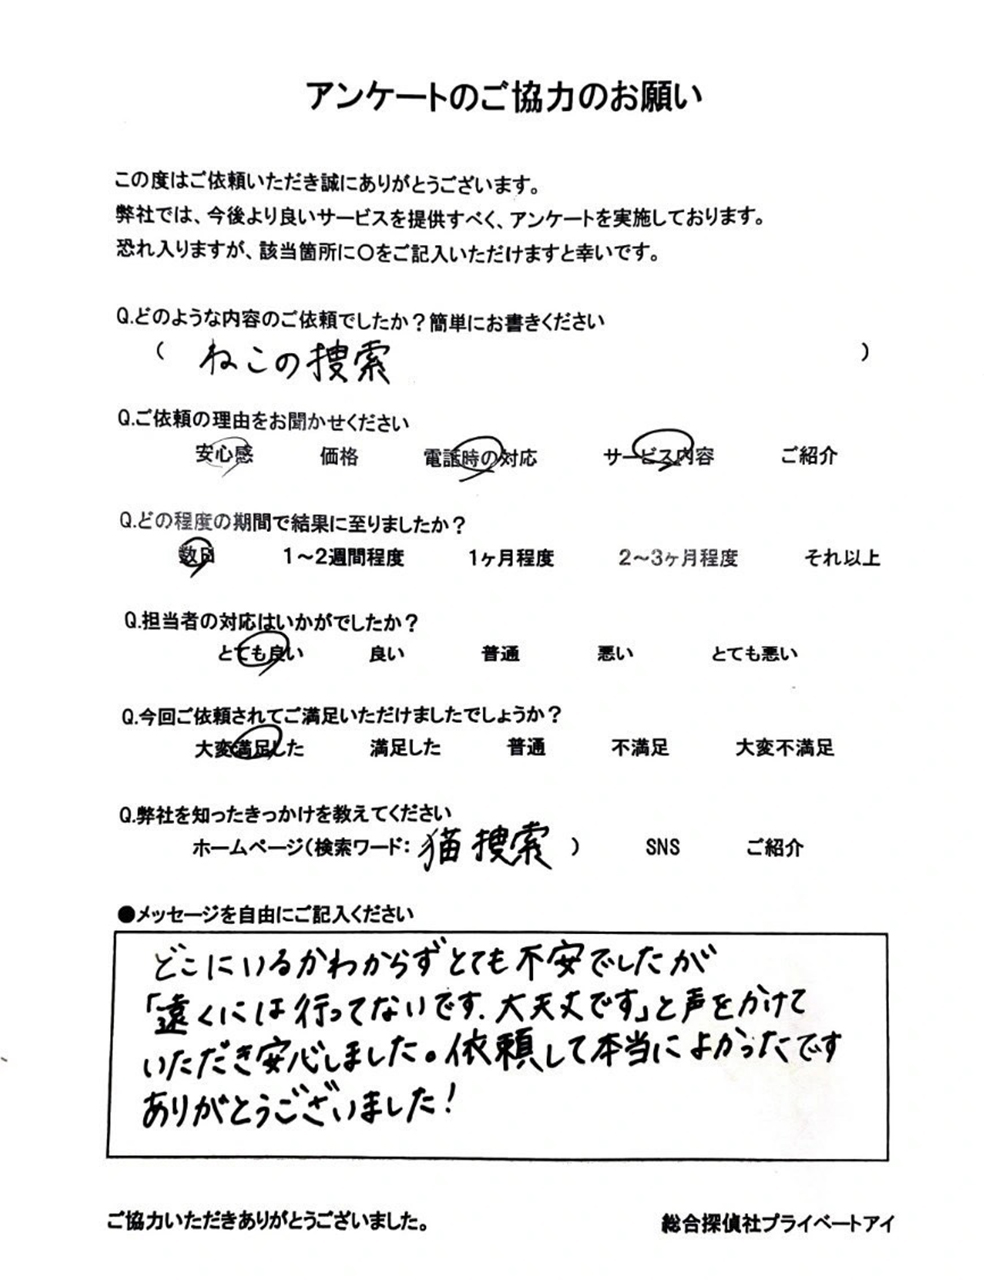 アンケートのご協力のお願い
この度はご依頼いただき誠にありがとうございます。
弊社では、今後より良いサービスを提供すべく、アンケートを実施しております。
恐れ入りますが、該当箇所に〇をご記入いただけますと幸いです。
Q.どのような内容のご依頼でしたか？簡単にお書きください
（ ねこの捜索 ）
Q.ご依頼の理由をお聞かせください
安心感 価格 電話時の対応 サービス内容 ご紹介
Q.どの程度の期間で結果に至りましたか？
数日 1～2週間程度 1ヶ月程度 2～3ヶ月程度 それ以上
Q.担当者の対応はいかがでしたか？
とても良い 良い 普通 悪い とても悪い
Q.今回ご依頼されてご満足いただけましたでしょうか？
大変満足した 満足した 普通 不満足 大変不満足
Q.弊社を知ったきっかけを教えてください
ホームページ（検索ワード： 猫捜索 ） SNS ご紹介
●メッセージを自由にご記入ください
どこにいるかわからずとても不安でしたが
「遠くには行ってないです.大天丈です」と声をかけて
いただき安心しました。依頼して本当によかったです
ありがとうございました！
ご協力いただきありがとうございました。
総合探偵社プライベートアイ